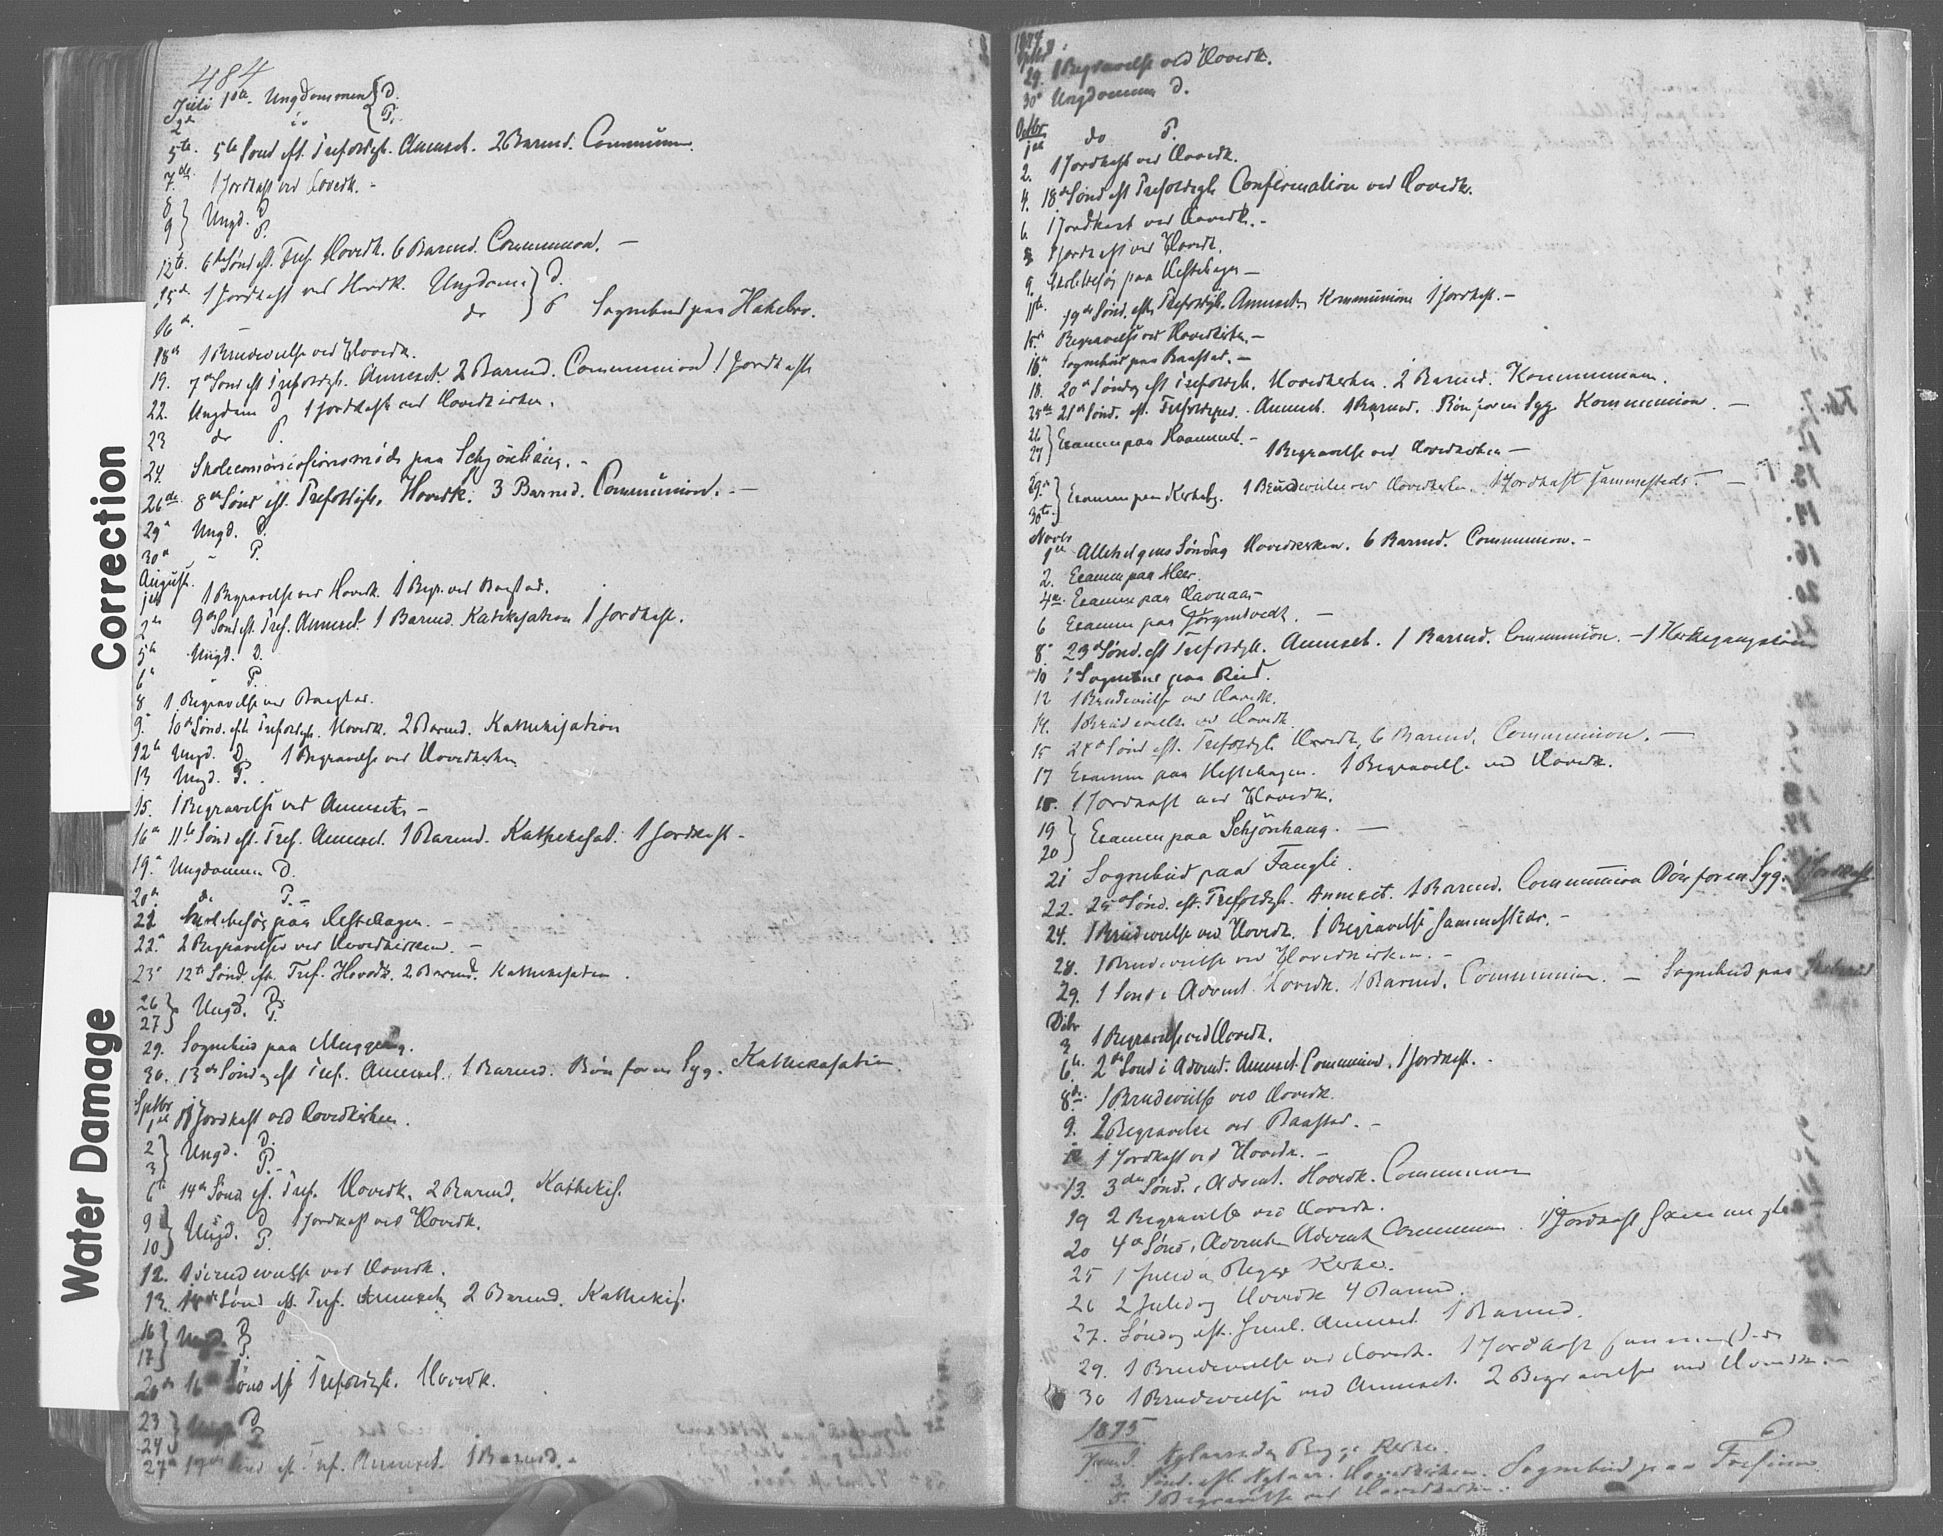 484
Juli 1ste Ungdommen D.
2den do P.
5te 5te Sønd eft. Trefoldigh. Annexet. 2 Barnd. Communion.
7de 1 Jordkast ved Hovedk. -
8 Ungd. D.
9 P.
12te 6te Sønd eft. Tref. Hovedk. 6 Barnd. Communion. —
15de 1 Jordkast ved Hovedk. Ungdom. D.
16de do P Sognebud paa Hakebro.
18de 1 Brudevielse ved Hovedk.
19. 7de Sønd eft Trefoldigh. Annexet. 2 Barnd. Communion 1 Jordkast
22. Ungdom D 1 Jordkast ved Hovedkirken.
23 do P.
24. Skolecommissionsmøde paa Schjønhaug. -
26de 8de Sønd eft. Trefoldigh. Hovedk. 3 Barnd. Communion. -
29de Ungd. D.
30de " P.
August.
1ste 1 Begravelse ved Hovedk. 1 Begr. ved Baastad.
2den 9de Sønd eft. Tref. Annexet. 1 Barnd. Katikisation 1 Jordkast.
5te Ungd. D.
6te " P.
8 1 Begravelse ved Baastad.
9de 10de Sønd. eft. Trefoldigh. Hovedk. 2 Barnd. Kathekisation
12te Ungd. D. 1 Begravelse ved Hovedkirken
13 Ungd. P.
15. 1 Begravelse ved Annexet. -
16de 11te Sønd eft. Tref. Annexet. 1 Barnd. Kathekisat. 1 Jordkast. -
19de Ungdommen D.
20de do P. -
21 Skolebesøg paa Hestehagen. -
22de 2 Begravelser ved Hovedkirken. -
23de 12te Sønd. eft. Tref. Hovedk. 2 Barnd. Kathekisation.
26 Ungd. D.
27 P.
29. Sognebud paa
30. 13de Søndag eft Tref. Annexet. 1 Barnd. Bøn for en Syg. Kathekisation
Sptbr
1ste 1 Jordkast ved Hovedkirken.
2 Ungd. D.
3 P.
6te 14de Sønd eft. Tref. Hovedk. 2 Barnd. Kathekis.
9 Ungd. D 1 Jordkast ved Hovedk.
10 P.
12. 1 Brudevielse ved Hovedk.
13. Sønd eft. Tref. Annexet 2 Barnd. Kathekis.
16 Ungd. D
17 P.
20de 16de Sønd eft Trefoldigh. Hovedk.
23 Ungd. D
24 P
27de 17de Sønd eft. Tref. Annexet. 1 Barnd. -
1874
Sptbr
29. 1 Begravelse ved Hovedk.
30te Ungdommen D.
Octbr
1ste do P.
2. 1 Jordkast ved Hovedk.
4. 18de Sønd eft Trefoldigh Confirmation ved Hovedk.
6. 1 Jordkast ved Hovedk. -
8 1 Jordkast ved Hovedk.
9. Skolebesøg paa Hestehagen —
11te 19de Sønd. eft. Trefoldigh. Annexet, Kommunion 1 Jordkast. -
15de Begravelse ved Hovedkirken —
16de Sognebud paa Baastad. —
18. 20de Søndag eft Trefoldigh. Hovedkirken. 2 Barnd. Kommunion.
25de 21de Sønd. eft. Trefoldighed. Annexet. 1 Barnd. Bøn for en Syg. Kommunion. —
26
27 Examen paa - 1 Begravelse ved Hovedkirken —
29de
30te Examen paa 1 Brudevielse ved Hovedkirken. 1 Jordkast sammesteds. —
Novbr
1ste Allehelgens Søndag Hovedkirken. 6 Barnd. Communion. -
2. Examen paa
4de Examen paa
6 Examen paa —
8de 23de Sønd. eft Trefoldigh. Annexet. 1 Barnd. Communion. — 1
10 1 Sognebud paa
12 1 Brudevielse ved Hovedk.
14. 1 Brudevielse ved Hovedk
15 24de Sønd eft. Trefoldigh. Hovedk, 6 Barnd. Communion. —
17 Examen paa Hestehagen. 1 Begravelse ved Hovedk.
18. 1 Jordkast ved Hovedk.
19
20 Examen paa Schjønhaug. —
21 Sognebud paa
22. 25de Sønd. eft. Trefoldigh. Annexet. 1 Barnd. Communion Bøn for en Syg. 1 Jordkast
24. 1 Brudevielse ved Hovedk. 1 Begravelse sammesteds. -
28. 1 Brudevielse ved Hovedkirken. -
29. 1 Sønd i Advent Hovedk. 1 Barnd. Communion. — Sognebud paa
Dcbr
3 1 Begravelse ved Hovedk.
6te 2den Sønd i Advent. Annexet. Communion. 1 Jordkast. -
8de 1 Brudevielse ved Hovedk.
9. 2 Begravelse ved Baastad. -
1 Jordkast ved Hovedk. -
13. 3die Sønd. i Advent. Hovedk. Communion
19 2 Begravelse ved Hovedk.
20 4de Sønd i Advent Communion. 1 Jordkast sammesteds
25 1 Juledag Begge Kirker.
26 2 Juledag Hovedk 4 Barnd.
27. Søndag eft. Juul. Annexet 1 Barnd.
29. 1 Brudevielse ved Hovedk. 1 Jordkast sammesteds
30 1 Brudevielse ved Annexet. 2 Begravelse ved Hovedk. -
1875
Nytaarsdag Begge Kirker.
3. Sønd. eft. Nytaar. Hovedkirken. Sognebud paa
5. 1 Begravelse ved Hovedkirken.
Water Damage Correction